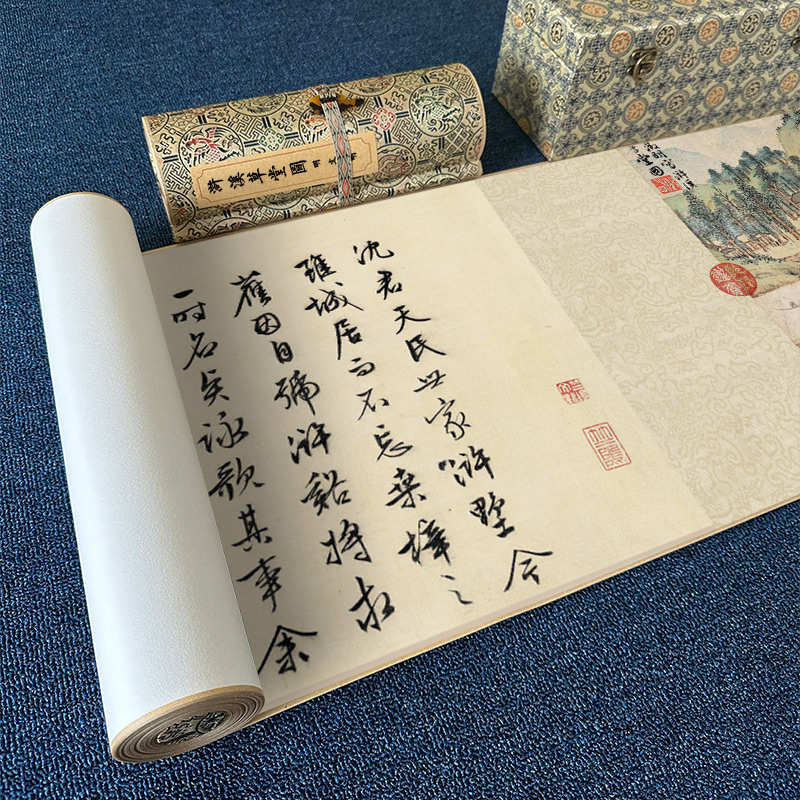 滸溪草堂圖 明 文 明
沈君天民世家滸墅今
雖城居而不忘桑梓之
舊因自號滸谿將
一时名詠歌其事余
堂圖